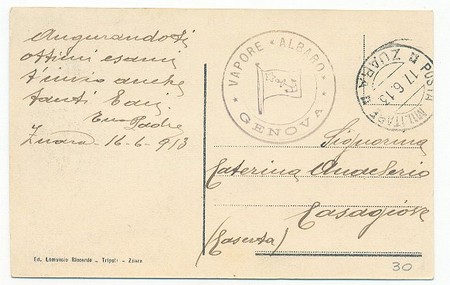 Augurandoti
ottimi esami
t'invio anche
tanti baci
Tuo Padre
Zuara 16-6-913
VAPORE "ALBARO"
GENOVA
POSTA MILITARE
17.6.13
ZUARA
Signorina
Caterina
Casagiove
(Caserta)
Ed. Lomuncio Riccardo - Tripoli - Zuara
30